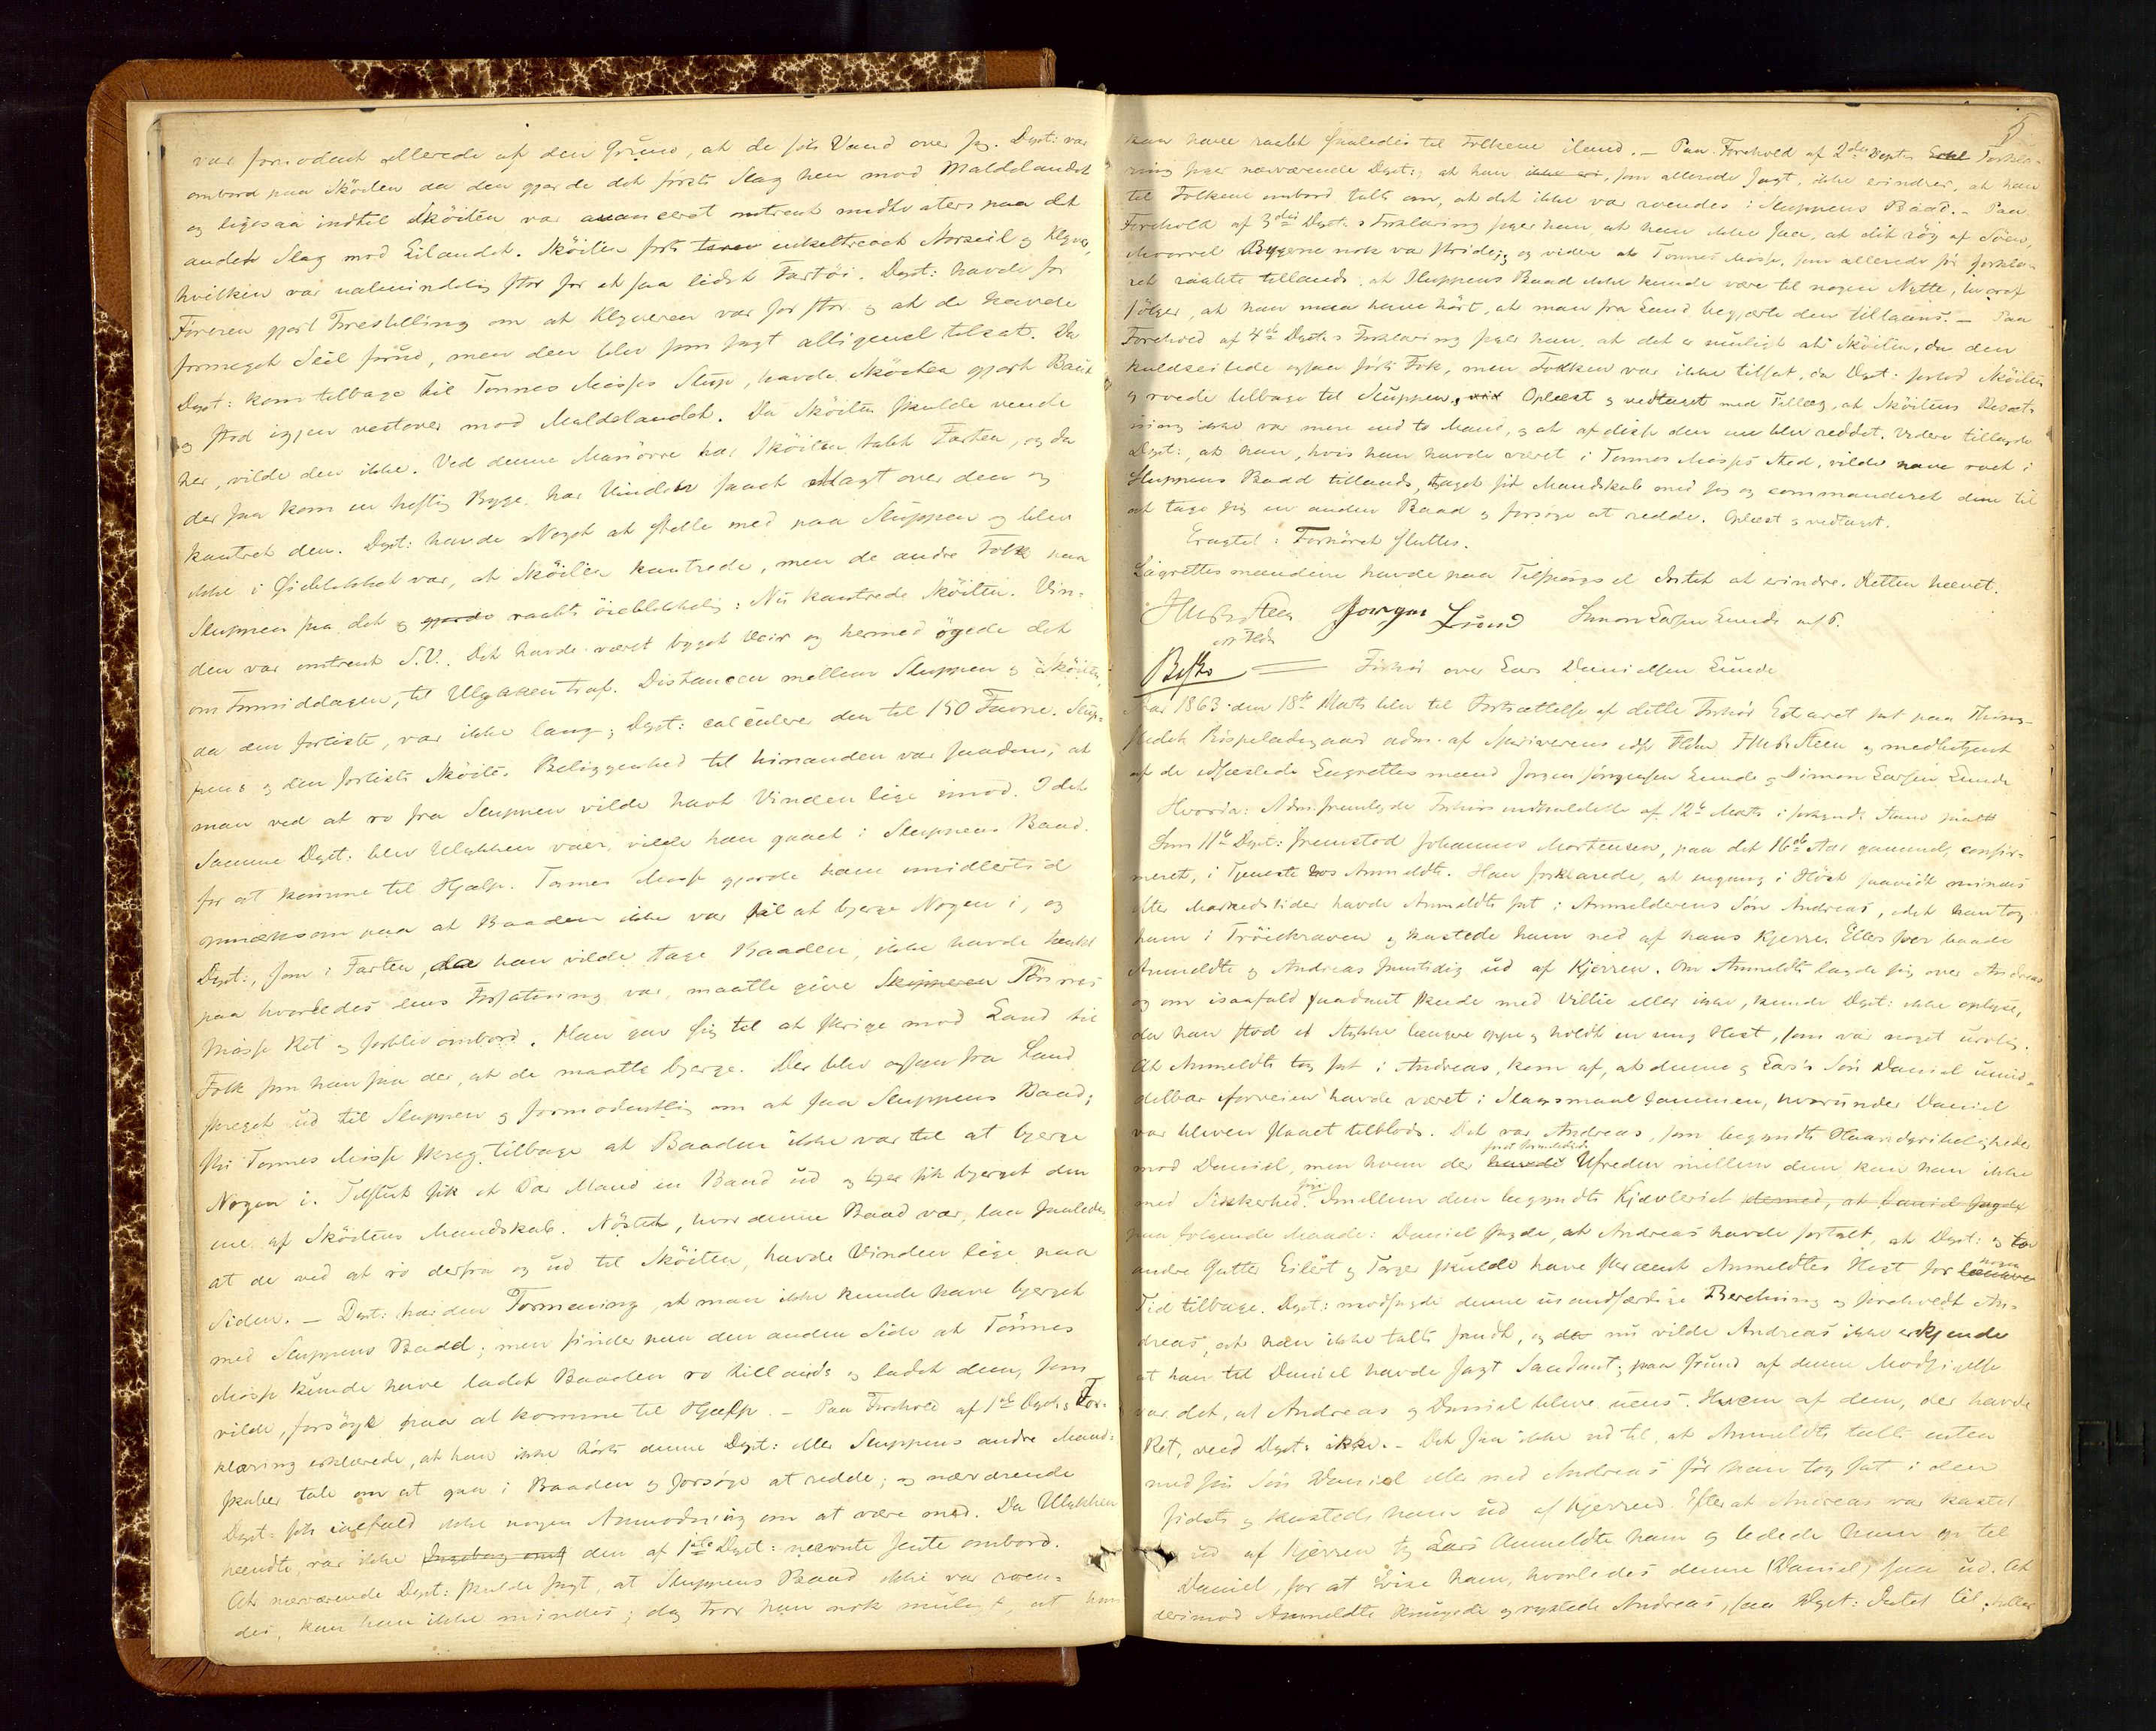 var formodent allerede af den Grund, at de fik Vand over sig. Dept: var
ombord paa Skøiten da den gjorde det første Slag hen mod Maldelandet
og ligesaa indtil Skøiten var avanceret omtrent midtvaters paa det
andet Slag mod Eilandet. Skøiten førte enkeltrevet Storseil og Klyver,
hvilken var ualmindelig stor for et saa lidet Fartøi. Dept: havde for
Føreren gjort Forestilling om at Klyveren var for stor og at de havde
formeget Seil forud, men den blev som sagt alligevel tilsat. Da
Dept: kom tilbage til Tønnes Mosses Slup, havde Skøiten gjort Baut
og stod igjen vestover mod Maldelandet. Da Skøiten skulde vende
her, vilde den ikke. Ved denne Manövre har Skøiten tabt Farten, og da
der saa kom en heftig Byge, har Vinden faaet Magt over den og
kantret den. Dept: havde Noget at stelle med paa Sluppen og blev
ikke i Øieblikket var, at Skøiten kantrede, men de andre Folk paa
Sluppen saa det og gjorde raabte øieblikkelig: Nu kantrede Skøiten. Vin-
den var omtrent S.V. Det havde været byget Veir og hermed øgede det
om Formiddagen, til Ulykken traf. Distancen mellem Sluppen og Skøiten,
da den forliste, var ikke lang; Dept: calculere den til 150 Favne. Slup-
pens og den forliste Skøite. Beliggenhed til hinanden var saadan, at
man ved at ro fra Sluppen vilde havt Vinden lige imod. I det
Samme Dept: blev Ulykken vaer, vilde han gaaet i Sluppens Baad.
for at komme til Hjælp. Tønnes Mosse gjorde ham imidlertid
opmærksom paa at Baaden ikke var til at bjerge Nogen i, og
Dept:, som i Farten, da han vilde tage Baaden, ikke havde tænkt
paa hvorledes dens Forfatning var, maatte give Skipperen Tønnes
Mosse Ret og forblev ombord. Han gav sig til at skrige mod Land til
Folk som han saa der, at de maatte bjerge. Der blev ogsaa fra Land
skreget ud til Sluppen og formodentlig om at faa Sluppens Baad;
thi Tønnes Mosse skreg tilbage at Baaden ikke var til at bjerge
Nogen i. Tilsidst fik et Par Mand en Baad ud og fik bjerget den
ene af Skøitens Mandskab. Nøstet, hvor denne Baad var, laa saaledes,
at de ved at ro derfra og ud til Skøiten, havde Vinden lige paa
Siden. — Dept: har den Formening, at man ikke kunde have bjerget
med Sluppens Baad; men finder paa den anden Side at Tönnes
Mosse kunde have ladet Baaden ro tillands og ladet dem, som
vilde, forsøgt paa at komme til Hjælp. — Paa Forehold af 1ste Depts For-
klaring erklærede, at han ikke hørte denne Dept: eller Sluppens andre Mand-
skaber tale om at gaa i Baaden og forsøge at redde; og nærværende
Dept: fik ialfald ikke nogen Anmodning om at være med. Da Ulykken
hændte, var ikke den af 1ste Dept: nævnte Jente ombord.
At nærværende Dept: skulde sagt, at Sluppens Baad ikke var roen-
des, kan han ikke mindes; dog tror han nok muligt, at han
5
kan have raabt saaledes til Folkene iland. — Paa Forehold af 2den Depts Forkla-
ring siger nærværende Dept:, at han, som allerede sagt, ikke erindrer, at han
til Folkene ombord talte om, at det ikke var roendes i Sluppens Baad. — Paa
Forehold af 3die Depts Forklaring siger han, at han ikke saa, at det røg af Søen,
hvorvel Bygerne nok var stride; og videre at Tønnes Mosse, som allerede før forkla-
ret raabte tillands at Sluppens Baad ikke kunde være til nogen Nytte, hvoraf
følger, at han maa have hørt, at man fra Land begjærte den tillands. — Paa
Forehold af 4de Depts Forklaring siger han, at det er muligt at Skøiten, da den
kuldseilede ogsaa førte Fok, men Fokken var ikke tilsat, da Dept: forlod Skøiten
og roede tilbage til Sluppen. Oplæst og vedtaget med Tillæg, at Skøitens Besæt-
ning ikke var mere end to Mand, og at af disse den ene blev reddet. Videre tillagde
Dept:, at han, hvis han havde været i Tønnes Mosses Sted, vilde have roet i
Sluppens Baad tillands, taget sit Mandskab med sig og commanderet dem til
at tage sig en anden Baad og forsøge at redde. Oplæst og vedtaget.
Eragtet: Forhøret sluttes.
Lagrettesmændene havde paa Tilspørgsel Intet at erindre. Retten hævet.
Jørgen Lund Simon Larsen Lunde m.f.P.
Forhør over Lars Danielsen Lunde
Aar 1863 den 18de Marts blev til Fortsættelse af dette Forhør Extraret sat paa Thing-
stedet Bispeladegaard adm. af Skriverens edsv. Fldm. Steen og medbetjent
af de edfæstede Lagrettesmænd Jørgen Jørgensen Lunde og Simon Larsen Lunde
Hvorda: Adm. fremlagde Forhørs indholdelse af 12te Marts i forkyndt Stand
Som 11te Dept: fremstod Johannes Mortensen, paa det 16de Aar gammel, confir-
meret, i Tjeneste hos Anmeldte. Han forklarede, at engang i Høst saavidt mindes
efter Markedstider havde Anmeldte fat i Anmelderens Søn Andreas, idet han tog
ham i Trøiekraven og kastede ham ned af hans Kjerre. Ellers foer baade
Anmeldte og Andreas samtidig ud af Kjerren. Om Anmeldte lagde sig over Andreas
og om isaafald saadant skede med Villie eller ikke, kunde Dept: ikke oplyse,
da han stod et Stykke længere oppe og holdt en ung Hest, som var noget urolig.
At Anmeldte tog fat i Andreas, kom af, at denne og Lars's Søn Daniel umid-
delbar iforveien havde været i Slagsmaal sammen, hvorunder Daniel
var bleven slaaet tilblods. Det var Andreas, som begyndte Haandgribeligheder
mod Daniel, men hvem der havde Ufreden mellem dem kan han ikke
med Sikkerhed sige. Imellem dem begyndte Kjævleriet dermed, at Daniel sagde
paa følgende Maade: Daniel sagde, at Andreas havde fortalt, at Dept: og to
andre Gutter Eilert og Torger skulde have skræmt Anmeldtes Hest for nogen
Tid tilbage. Dept: modsagde denne usandfærdige Beretning og foreholdt An-
dreas, at han ikke talte sandt, og nu vilde Andreas ikke erkjende
at han til Daniel havde sagt Saadant; paa Grund af denne Modsigelse
var det, at Andreas og Daniel bleve uens. Hvem af dem, der havde
Ret, veed Dept: ikke. — Det saa ikke ud til, at Anmeldte talte enten
med sin Søn Daniel eller med Andreas før han tog fat i den
sidste og kastede ham ud af Kjerren. Efter at Andreas var kastet
ud af Kjerren tog Lars Anmeldte ham og ledede ham op til
Daniel, for at vise ham, hvorledes denne (Daniel) saa ud. At
derimod Anmeldte knugede og rystede Andreas, saa Dept: Intet til, heller